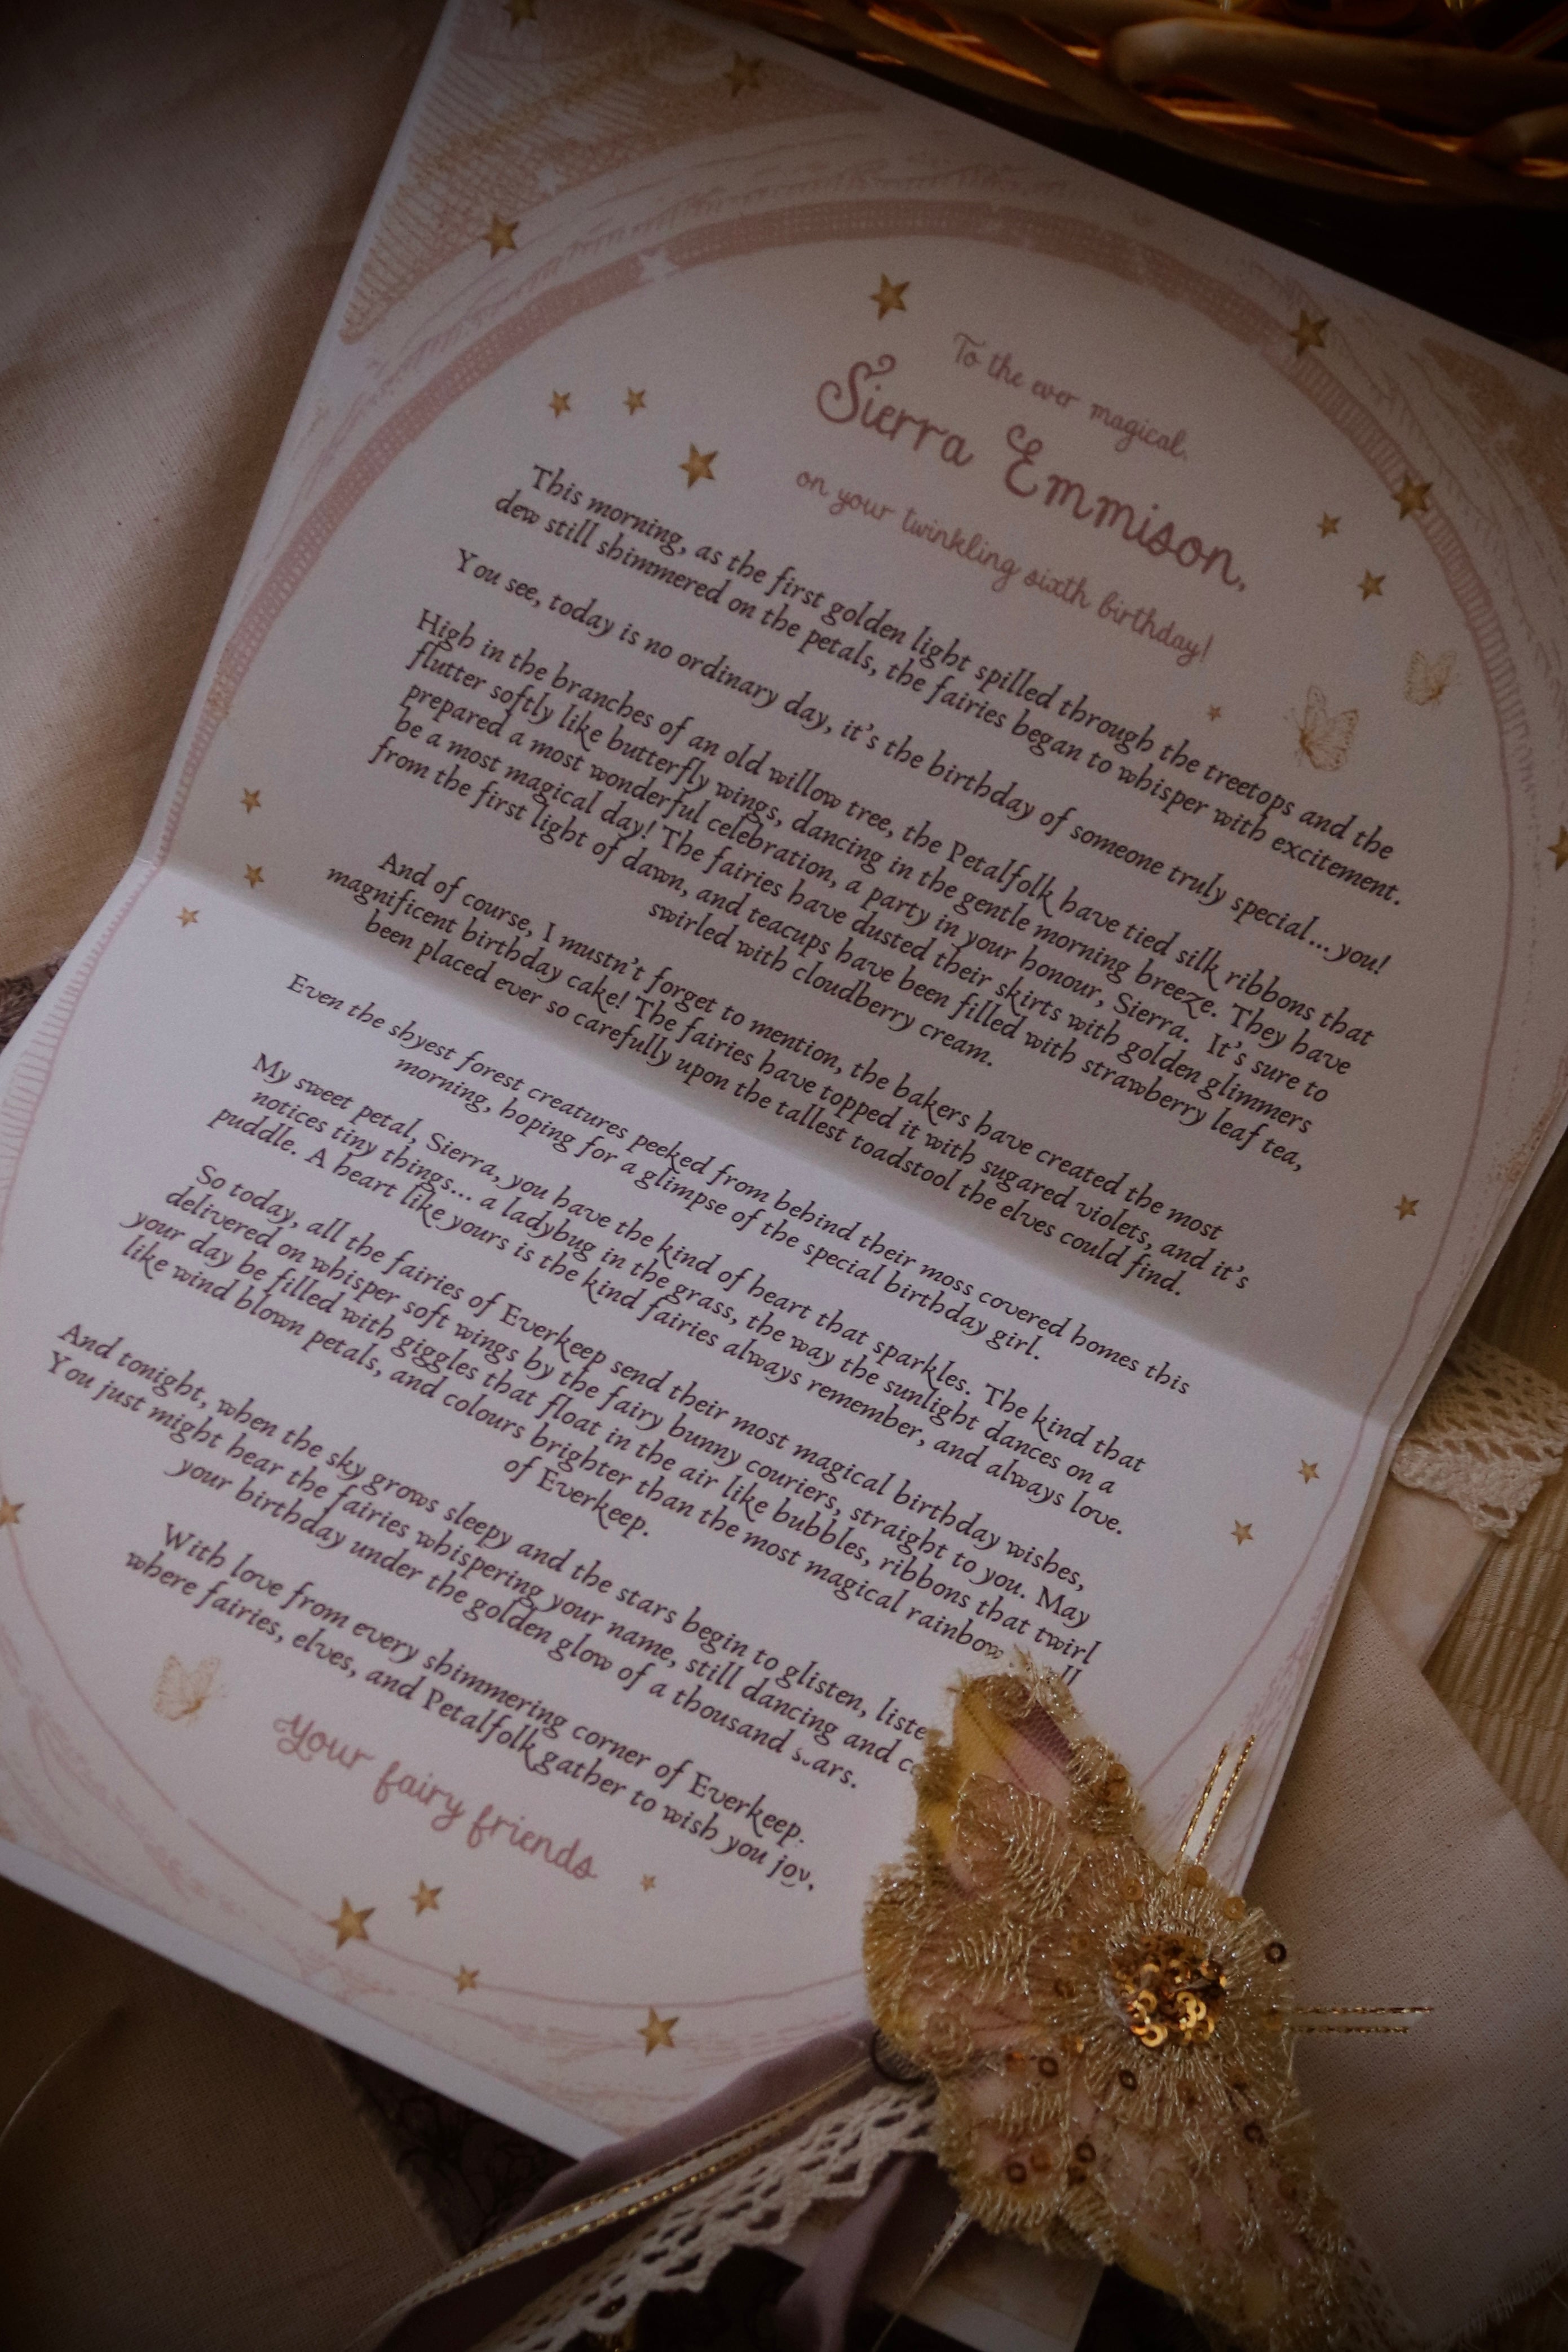 To the ever magical,
Sierra Emmison,
on your twinkling sixth birthday!
This morning, as the first golden light spilled through the treetops and the
dew still shimmered on the petals, the fairies began to whisper with excitement.
You see, today is no ordinary day, it's the birthday of someone truly special... you!
High in the branches of an old willow tree, the Petalfolk have tied silk ribbons that
flutter softly like butterfly wings, dancing in the gentle morning breeze. They have
prepared a most wonderful celebration, a party in your honour, Sierra. It's sure to
be a most magical day! The fairies have dusted their skirts with golden glimmers
from the first light of dawn, and teacups have been filled with strawberry leaf tea,
swirled with cloudberry cream.
And of course, I mustn't forget to mention, the bakers have created the most
magnificent birthday cake! The fairies have topped it with sugared violets, and it's
been placed ever so carefully upon the tallest toadstool the elves could find.
Even the shyest forest creatures peeked from behind their moss covered homes this
morning, hoping for a glimpse of the special birthday girl.
My sweet petal, Sierra, you have the kind of heart that sparkles. The kind that
notices tiny things... a ladybug in the grass, the way the sunlight dances on a
puddle. A heart like yours is the kind fairies always remember, and always love.
So today, all the fairies of Everkeep send their most magical birthday wishes,
delivered on whisper soft wings by the fairy bunny couriers, straight to you. May
your day be filled with giggles that float in the air like bubbles, ribbons that twirl
like wind blown petals, and colours brighter than the most magical rainbow
of Everkeep.
And tonight, when the sky grows sleepy and the stars begin to glisten,
You just might hear the fairies whispering your name, still dancing and
your birthday under the golden glow of a thousand stars.
With love from every shimmering corner of Everkeep.
where fairies, elves, and Petalfolk gather to wish you joy,
Your fairy friends